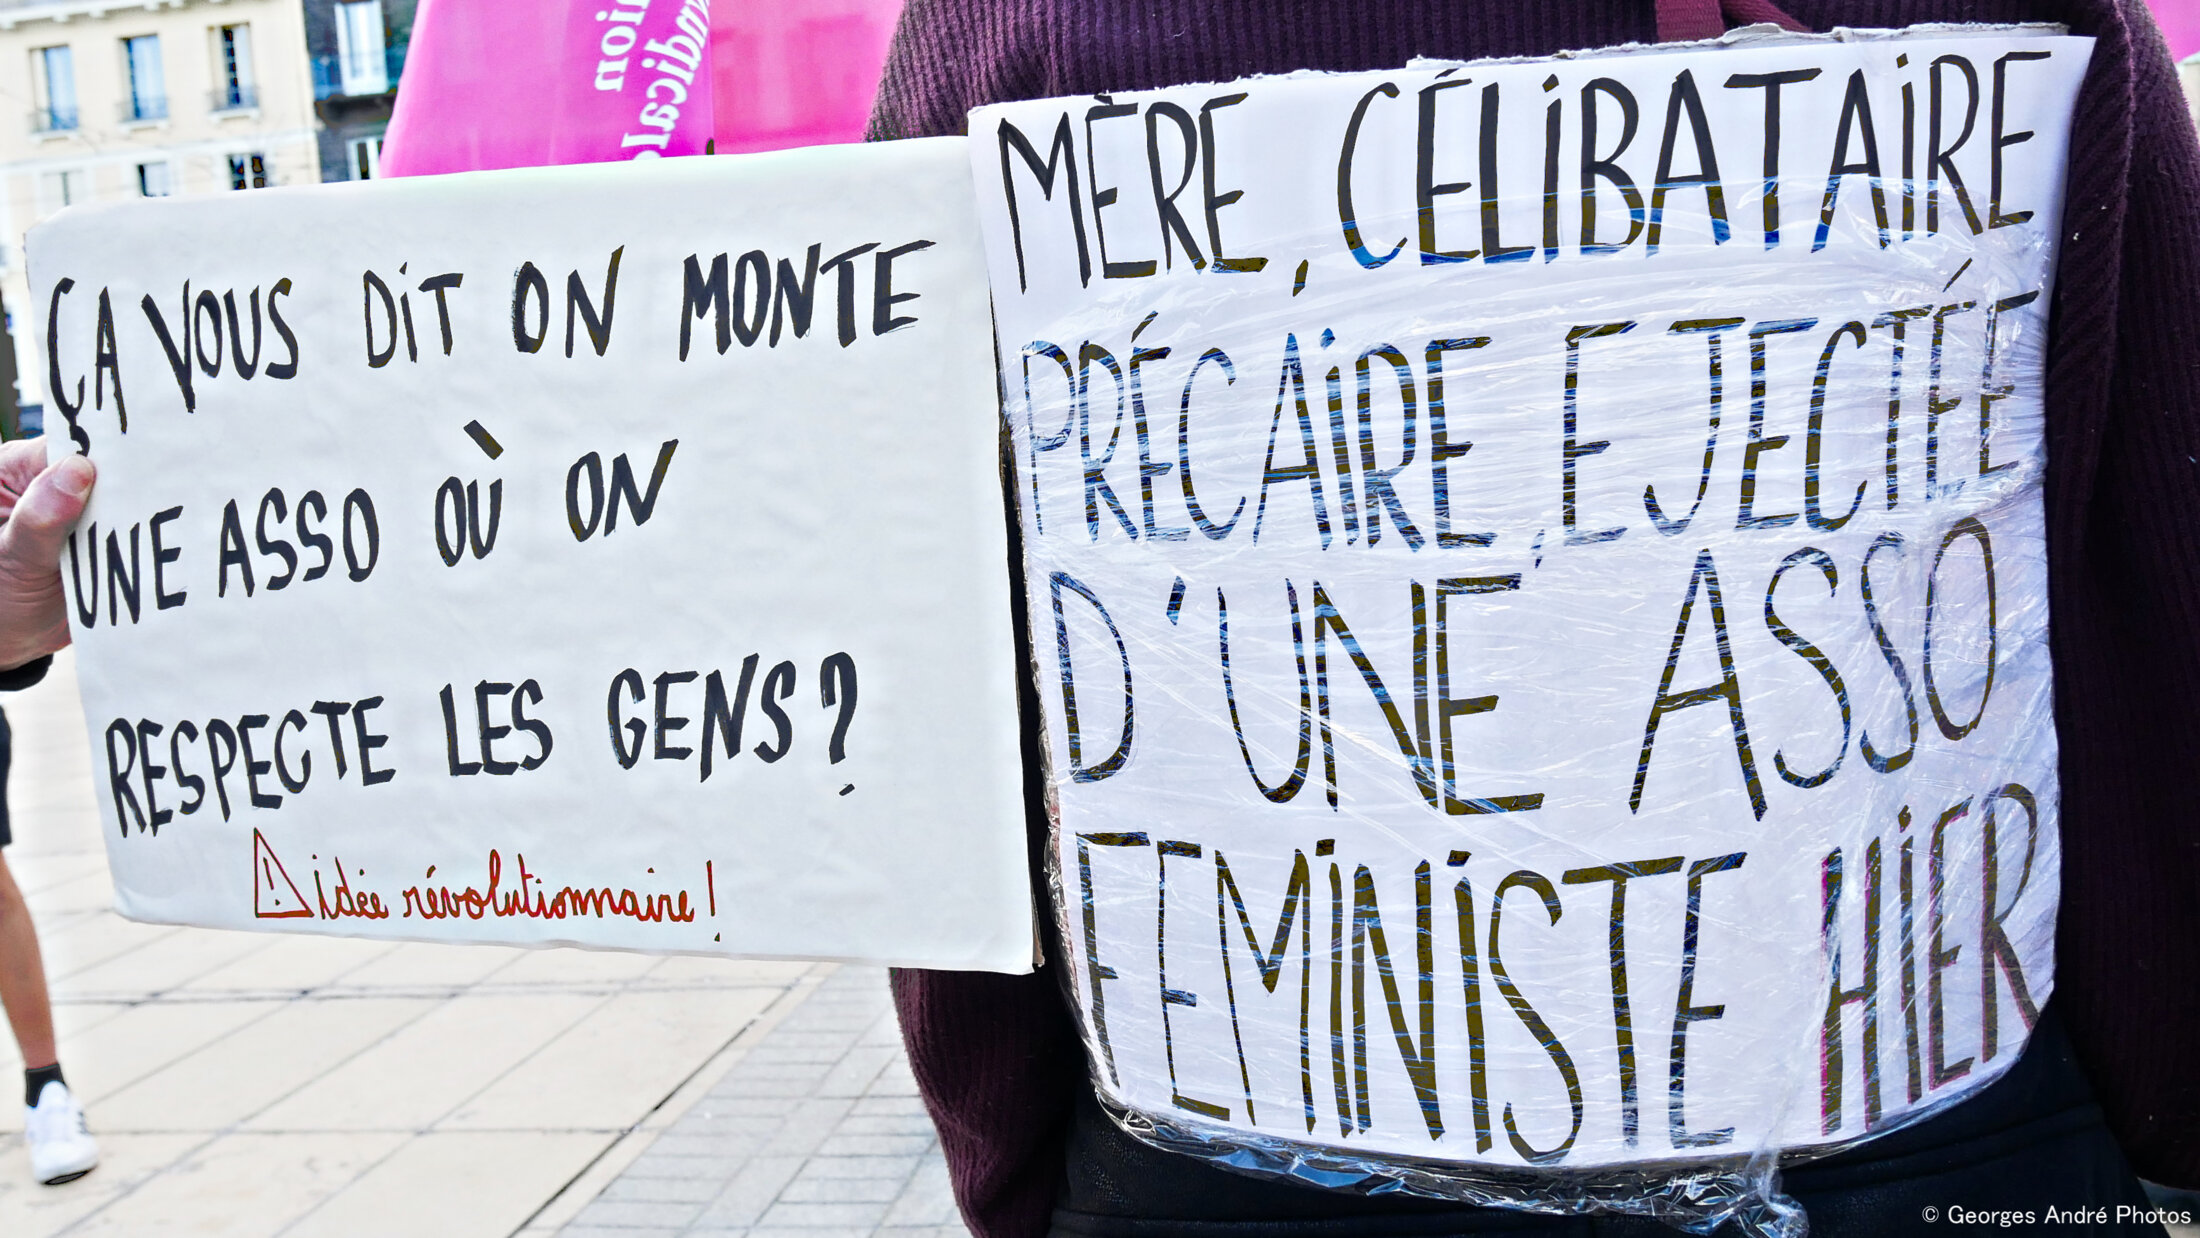 nion
syndicale
ÇA VOUS DIT ON MONTE
UNE ASSO OÙ ON
RESPECTE LES GENS?
idée révolutionnaire!
MÈRE, CÉLIBATAIRE
PRÉCAIRE, EJECTÉE
D'UNE ASSO
FEMINISTE HIER
© Georges André Photos